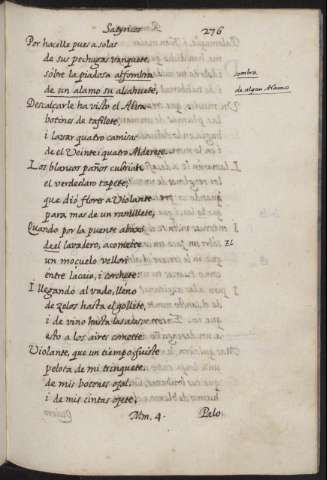 Satyricos
276
Por hacelle pues a solas
de sus pechugas vanquete,
sobre la piadosa alfombra
sombra
de un alamo su alcahuete,
de algun Alamo
Descalçarle ha visto el Alva
botines de tafilete,
i lavar quatro camisas
de el Veinte i quatro Alderete.
Los blancos paños cubrian
el verdeclaro tapete,
que dió flores a Violante
para mas de un ramillete,
Quando por la puente abaxo
de el lavadero, acomete
el
un moçuelo vellori
entre lacaio, i corchete:
I llegando al vado, lleno
de zelos hasta el gollete,
i de vino hasta las
esto a los aires comette
Violante, que un tiempo fuiste
pelota de mi trinquete,
de mis botones ojal,
i de mis cintas ojete,
Mm. 4.
Palo